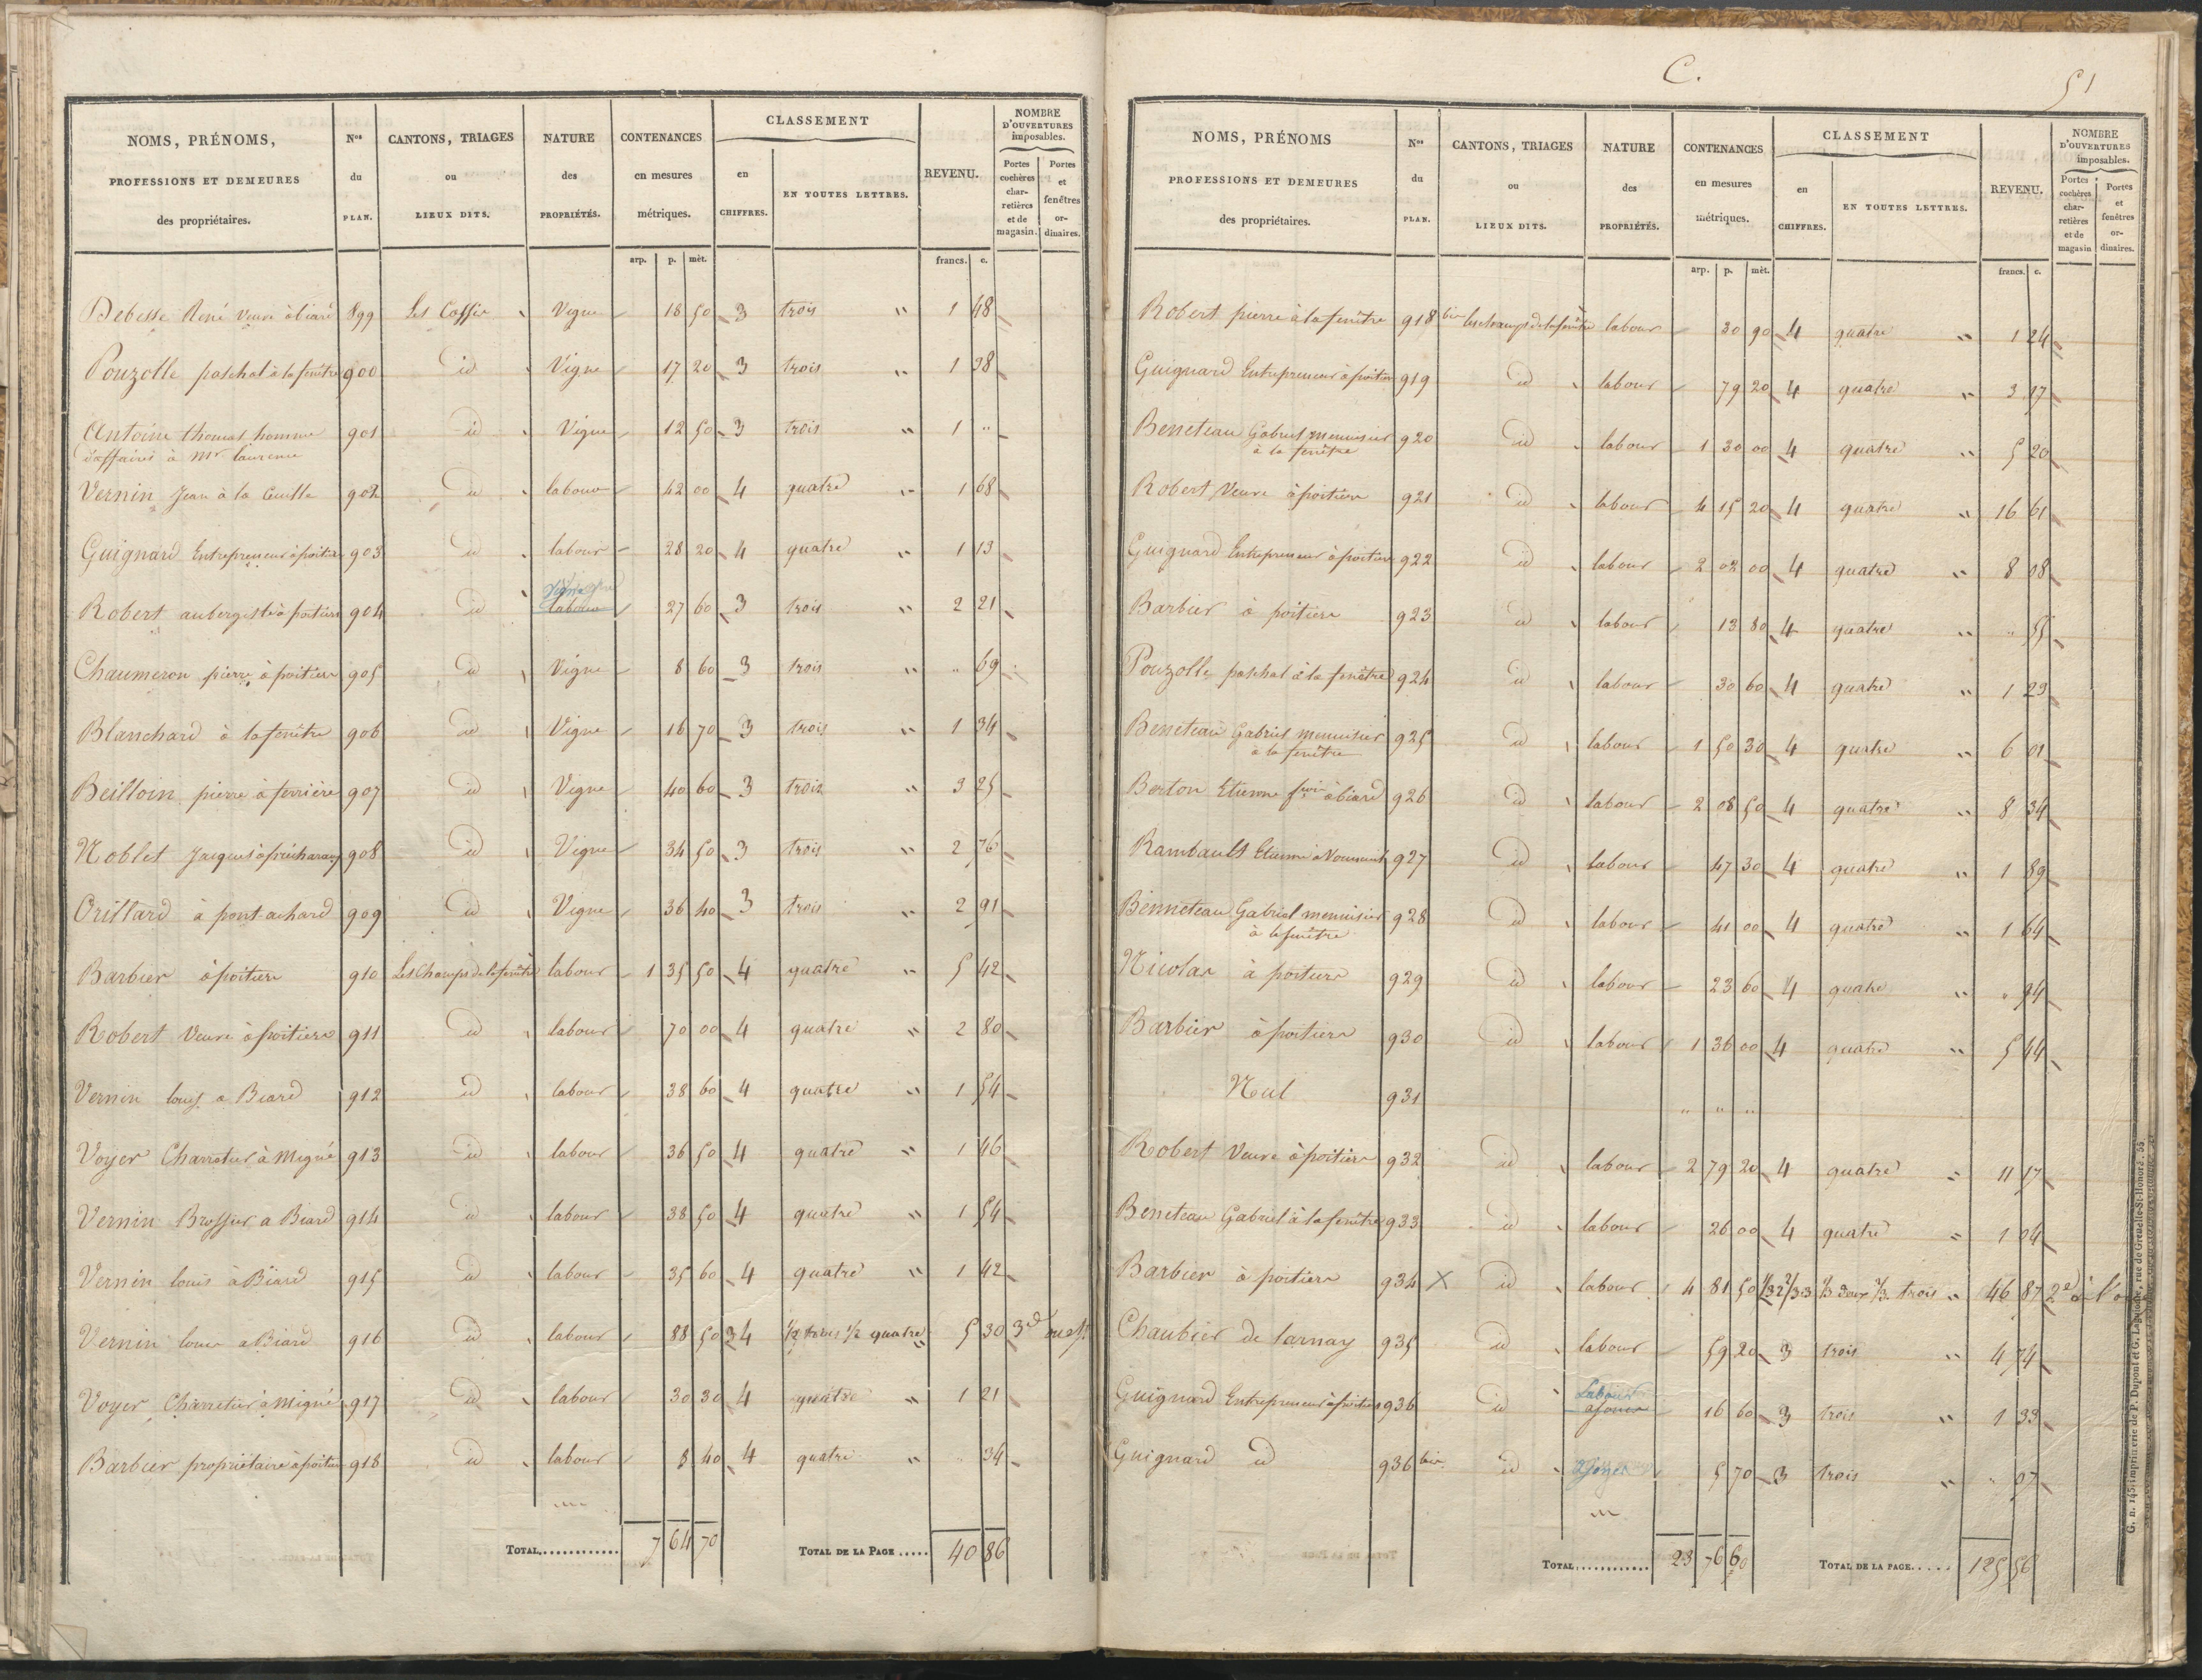 NOMS, PRÉNOMS,
PROFESSIONS ET DEMEURES
des propriétaires.
Nos
du
PLAN.
CANTONS, TRIAGES
ou
LIEUX DITS.
NATURE
des
PROPRIÉTÉS.
CONTENANCES
en mesures
métriques.
CLASSEMENT
en
CHIFFRES.
EN TOUTES LETTRES.
REVENU.
NOMBRE
D'OUVERTURES
imposables.
Portes
cochères
char-
retières
et de
magasin.
Portes
et
fenêtres
or-
dinaires.
arp. p. mèt. francs. c.
Debesse René Veuve à biard 899 Les Vigne 18 50 3 trois " 1 48
Pouzolle paschal à la fenêtre 900 id Vigne 17 20 3 trois " 1 38
Antoine thomas homme 901 id Vigne 12 50 3 trois " 1 "
d'affaires à Mr Laurence
Vernin Jean à la 902 id labour 42 00 4 quatre " 1 68
Guignard Entrepreneur à poitiers 903 id labour 28 20 4 quatre " 1 13
Vigne
Robert aubergiste à poitiers 904 id labour 27 60 3 trois " 2 21
Chaumeron pierre à poitiers 905 id Vigne 8 60 3 trois " " 69
Blanchard à la fenêtre 906 id Vigne 16 70 3 trois " 1 34
Beilloin pierre à ferrière 907 id Vigne 40 60 3 trois " 3 25
Noblet Jacques à 908 id Vigne 34 50 3 trois " 2 76
Orillard à pont achard 909 id Vigne 36 40 3 trois " 2 91
Barbier à poitiers 910 Les Champs de la fenêtre labour 1 35 50 4 quatre " 5 42
Robert Veuve à poitiers 911 id labour 70 00 4 quatre " 2 80
Vernin louis a Biard 912 id labour 38 60 4 quatre " 1 54
Voyer Charretier à Migné 913 id labour 36 50 4 quatre " 1 46
Vernin Brossier a Biard 914 id labour 38 50 4 quatre " 1 54
Vernin louis à Biard 915 id labour 35 60 4 quatre " 1 42
Vernin louis a Biard 916 id labour 88 50 3 4 1/2 trois 1/2 quatre " 5 30 3e ouest
Voyer Charretier à Migné 917 id labour 30 30 4 quatre " 1 21
Barbier propriétaire à poitiers 918 id labour 8 40 4 quatre " " 34
TOTAL............ 7 64 70 TOTAL DE LA PAGE..... 40 86
C.
51
NOMS, PRÉNOMS
PROFESSIONS ET DEMEURES
des propriétaires.
Nos
du
PLAN.
CANTONS, TRIAGES
ou
LIEUX DITS.
NATURE
des
PROPRIÉTÉS.
CONTENANCES
en mesures
métriques.
CLASSEMENT
en
CHIFFRES.
EN TOUTES LETTRES.
REVENU.
NOMBRE
D'OUVERTURES
imposables.
Portes
cochères
char-
retières
et de
magasin
Portes
et
fenêtres
or-
dinaires.
arp. p. mèt. francs. c.
Robert pierre à la fenêtre 918 bis les champs de la fenêtre labour 30 90 4 quatre " 1 24
Guignard Entrepreneur à poitiers 919 id labour 79 20 4 quatre " 3 17
Beneteau Gabriel menuisier 920 id labour 1 30 00 4 quatre " 5 20
à la fenêtre
Robert Veuve à poitiers 921 id labour 4 15 20 4 quatre " 16 61
Guignard Entrepreneur à poitiers 922 id labour 2 02 00 4 quatre " 8 08
Barbier à poitiers 923 id labour 13 80 4 quatre " " 55
Pouzolle paschal à la fenêtre 924 id labour 30 60 4 quatre " 1 23
Beneteau Gabriel menuisier 925 id labour 1 50 30 4 quatre " 6 01
à la fenêtre
Berton Etienne à biard 926 id labour 2 08 50 4 quatre " 8 34
Rambault Etienne à 927 id labour 47 30 4 quatre " 1 89
Benneteau Gabriel menuisier 928 id labour 41 00 4 quatre " 1 64
à la fenêtre
Nicolas à poitiers 929 id labour 23 60 4 quatre " " 94
Barbier à poitiers 930 id labour 1 36 00 4 quatre " 5 44
Nul 931 " " "
Robert Veuve à poitiers 932 id labour 2 79 20 4 quatre " 11 17
Beneteau Gabriel à la fenêtre 933 id labour 26 00 4 quatre " 1 04
Barbier à poitiers 934 X id labour 4 81 50 1/3 2 2/3 3 1/3 deux 2/3 trois " 46 87 2e à l'
Chaubier de larnay 935 id labour 59 20 3 trois " 4 74
Labour
Guignard Entrepreneur à poitiers 936 id ajoncs 16 60 3 trois " 1 33
Guignard id 936 bis id 5 70 3 trois " " 07
TOTAL............ 23 76 60 TOTAL DE LA PAGE..... 125 56
G. n. 145. imprimerie de P. Dupont et G. Laguionie, rue de Grenelle-St-Honoré, 55.